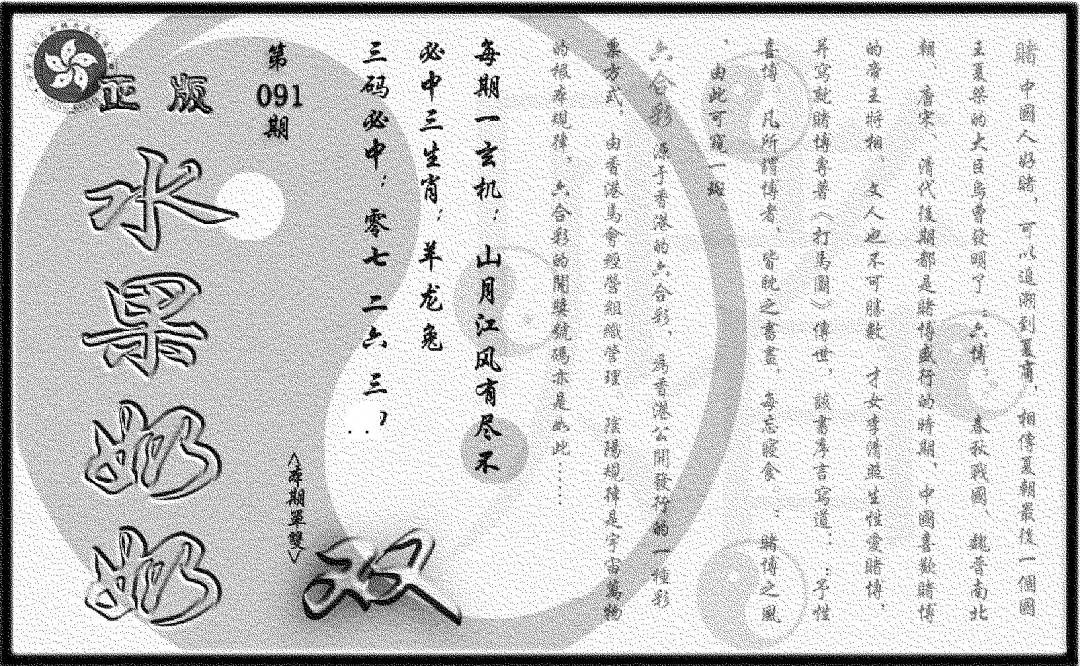 賭 中國人好賭，可以追溯到夏商，相傳夏朝最後一個國
王夏桀的大臣烏曹發明了：六博。 春秋戰國、魏晉南北
朝、唐宋、清代後期都是賭博盛行的時期、中國喜歡賭博
的帝王將相 文人也不可勝數 才女李清照生性愛賭博，
并寫就賭博專著《打馬圖》傳世，該書序言寫道：：予性
喜博 凡所謂博者，皆耽之書畫，每忘寢食：賭博之風
，由此可窺一斑
六合彩 源于香港的六合彩，為香港公開發行的一種彩
票方式，由香港馬會經營組織管理。陰陽規律是宇宙萬物
的根本規律，六合彩的開獎號碼亦是如此……
每期一玄机：山月江风有尽不
必中三生肖：羊龙兔
三码必中：零七 二六 三
第
091
期
正版
水果奶奶
<本期單雙>
双